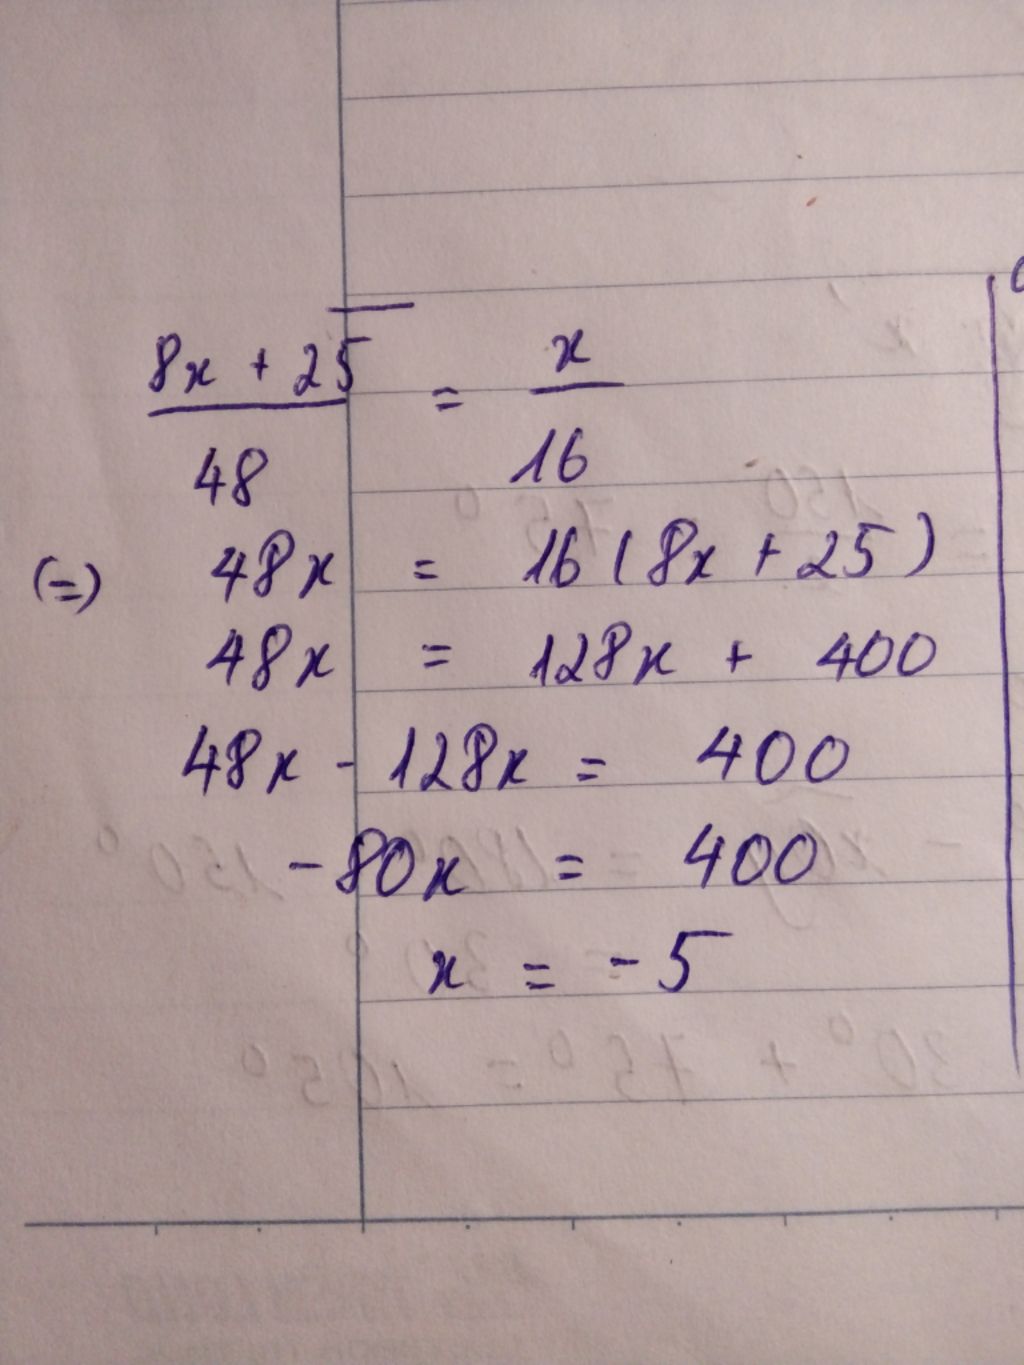 8x + 25 / 48 = x / 16
(=) 48x = 16(8x + 25)
48x = 128x + 400
48x - 128x = 400
-80x = 400
x = -5